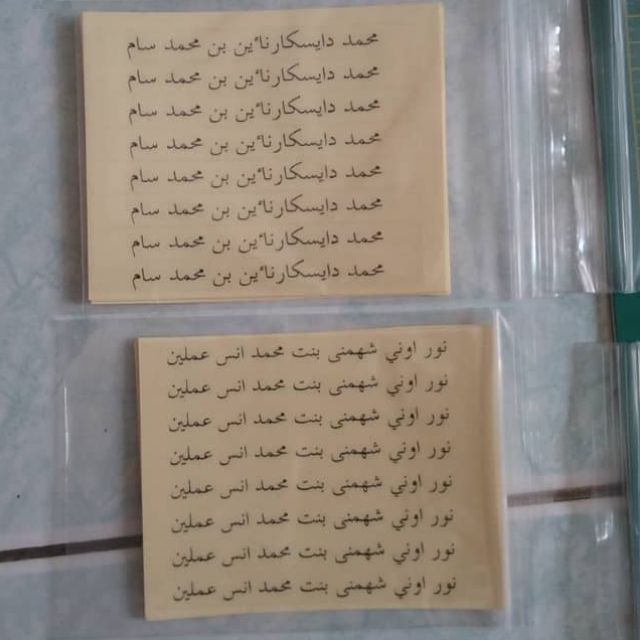 محمد دايسكارناءين بن محمد سام
محمد دايسكارناءين بن محمد سام
محمد دايسكارناءين بن محمد سام
محمد دايسكارناءين بن محمد سام
محمد دايسكارناءين بن محمد سام
محمد دايسكارناءين بن محمد سام
محمد دايسكارناءين بن محمد سام
محمد دايسكارناءين بن محمد سام
نور اوني شهمنى بنت محمد انس عملين
نور اوني شهمنى بنت محمد انس عملين
نور اوني شهمنى بنت محمد انس عملين
نور اوني شهمنى بنت محمد انس عملين
نور اوني شهمنى بنت محمد انس عملين
نور اوني شهمنى بنت محمد انس عملين
نور اوني شهمنى بنت محمد انس عملين
نور اوني شهمنى بنت محمد انس عملين